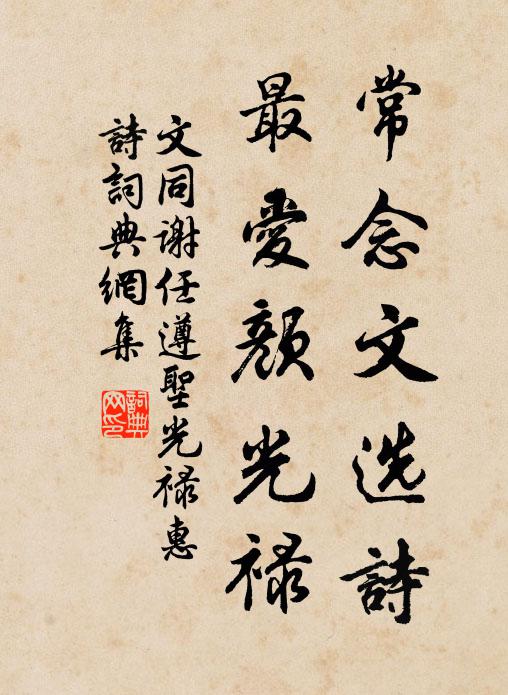 常念文选詩
最愛顏光禄
文同謝任遵聖光禄惠
詩詞典網集
詞典网印